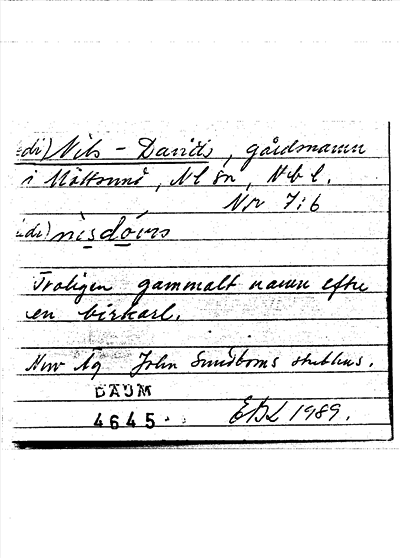 (di) Nils-Davids, gårdsnamn
i Måttsund, Nl sn, Nb l.
Nr 7:6
(di) nisdóvrs
Troligen gammalt namn efter
en birkarl.
Nuv äg John Sundboms sterbhus.
DAUM
4645.
EBL 1989.